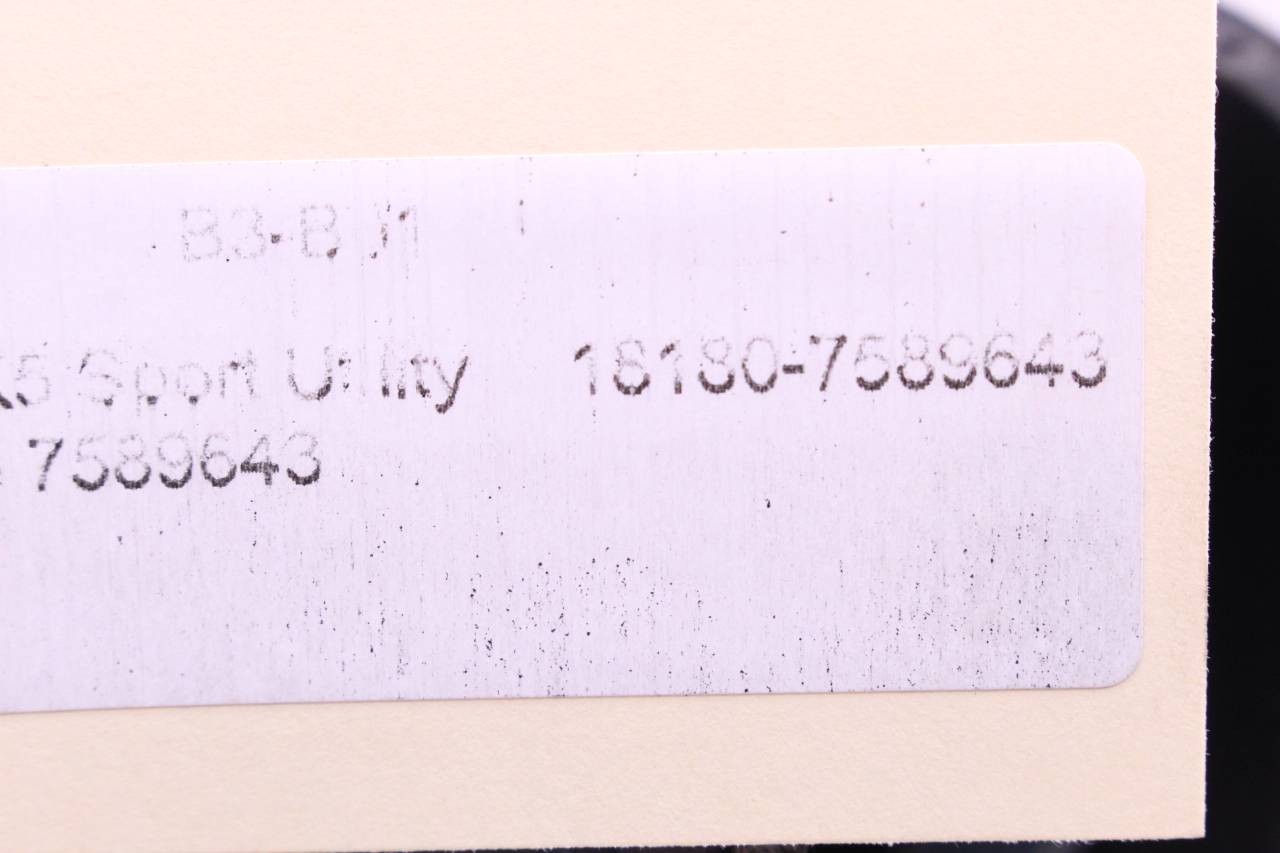 B3-B J1
X5 Sport Utility 18180-7589643
7589643